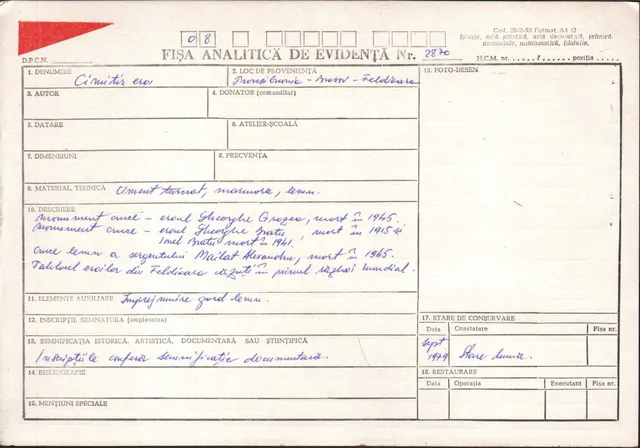 Cod. 20-2-53 Format A4 t2
Istorie, artă plastică, artă decorativă, tehnică
memoriale, numismatică, filatelie,
0 8
D.P.C.N.
FIȘA ANALITICĂ DE EVIDENȚĂ Nr. 2870
H.C.M. nr. poziția
1. DENUMIRE
Cimitir eroi
2. LOC DE PROVENIENȚĂ
Brașov - Feldioara
3. AUTOR
4. DONATOR (comanditar)
5. DATARE
6. ATELIER-ȘCOALĂ
7. DIMENSIUNI
8. FRECVENȚA
9. MATERIAL, TEHNICĂ Ciment turnat, marmora, lemn.
10. DESCRIERE
Monument cruce - eroul Gheorghe Grozea, mort în 1945.
Monument cruce - eroul Gheorghe Bratu, mort în 1915 și
Ionel Bratu mort în 1941.
Cruce lemn a sergentului Mailat Alexandru, mort în 1945.
Tabloul eroilor din Feldioara căzuți în primul război mondial.
11. ELEMENTE AUXILIARE Împrejmuire gard lemn.
12. INSCRIPȚII, SEMNATURA (amplasarea)
13. SEMNIFICAȚIA ISTORICĂ, ARTISTICĂ, DOCUMENTARĂ SAU ȘTIINȚIFICĂ
Inscripțiile conferă semnificație documentară.
14. BIBLIOGRAFIE
15. MENȚIUNI SPECIALE
16. FOTO-DESEN
17. STARE DE CONSERVARE
Data Constatare Fișa nr.
sept 1979 Stare bună.
18. RESTAURARE
Data Operația Executant Fișa nr.